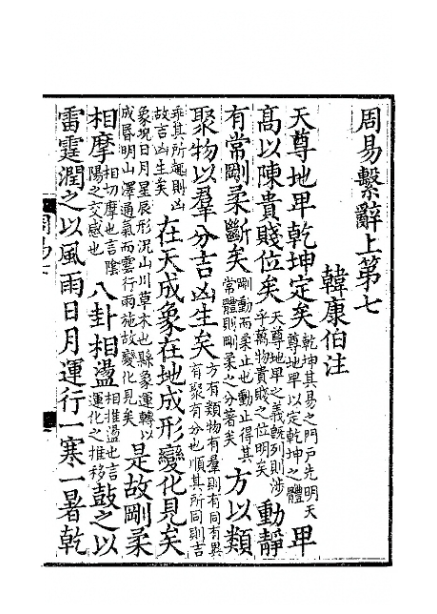 周易繫辭上第七
韓康伯注
天尊地卑乾坤定矣乾坤其易之門戶先明天尊地卑以定乾坤之體卑
高以陳貴賤位矣天尊地卑之義既列則涉乎萬物貴賤之位明矣動靜
有常剛柔斷矣剛動而柔止也動止得其常體則剛柔之分著矣方以類
聚物以羣分吉凶生矣方有類物有羣則有同有異有聚有分也順其所同則吉
乖其所趣則凶故吉凶生矣在天成象在地成形變化見矣
象況日月星辰形況山川草木也縣象運轉以成昏明山澤通氣而雲行雨施故變化見矣是故剛柔
相摩相切摩也言陰陽之交感也八卦相盪相推盪也言運化之推移鼓之以
雷霆潤之以風雨日月運行一寒一暑乾